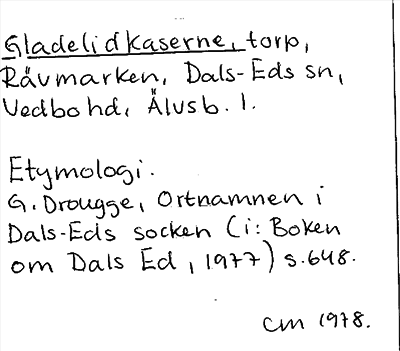 Gladelidkaserne, torp,
Rävmarken, Dals-Eds sn,
Vedbo hd, Älvsb. l.
Etymologi.
G. Drougge, Ortnamnen i
Dals-Eds socken (i: Boken
om Dals Ed, 1977) s. 648.
CM 1978.